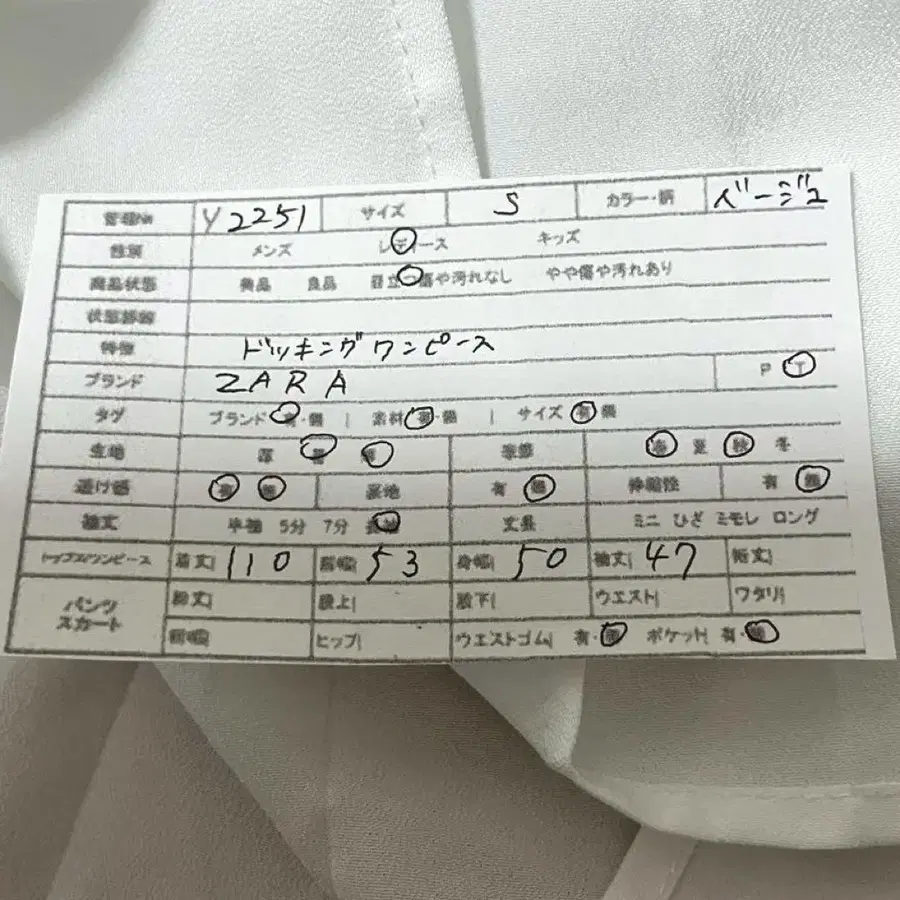 管理No Y2251 サイズ S カラー・柄 ベージュ
性別 メンズ レディース キッズ
商品状態 美品 良品 目立つ傷や汚れなし やや傷や汚れあり
状態詳細
特徴 ドッキングワンピース
ブランド ZARA P T
タグ ブランド 有・無 | 素材 有・無 | サイズ 有・無
生地 厚 普 薄 季節 春 夏 秋 冬
透け感 有 無 裏地 有 無 伸縮性 有 無
袖丈 半袖 5分 7分 長袖 丈長 ミニ ひざ ミモレ ロング
トップス/ワンピース 着丈| 110 肩幅| 53 身幅| 50 袖丈| 47 裄丈|
パンツ スカート 総丈| 股上| 股下| ウエスト| ワタリ|
裾幅| ヒップ| ウエストゴム| 有・無 ポケット| 有・無